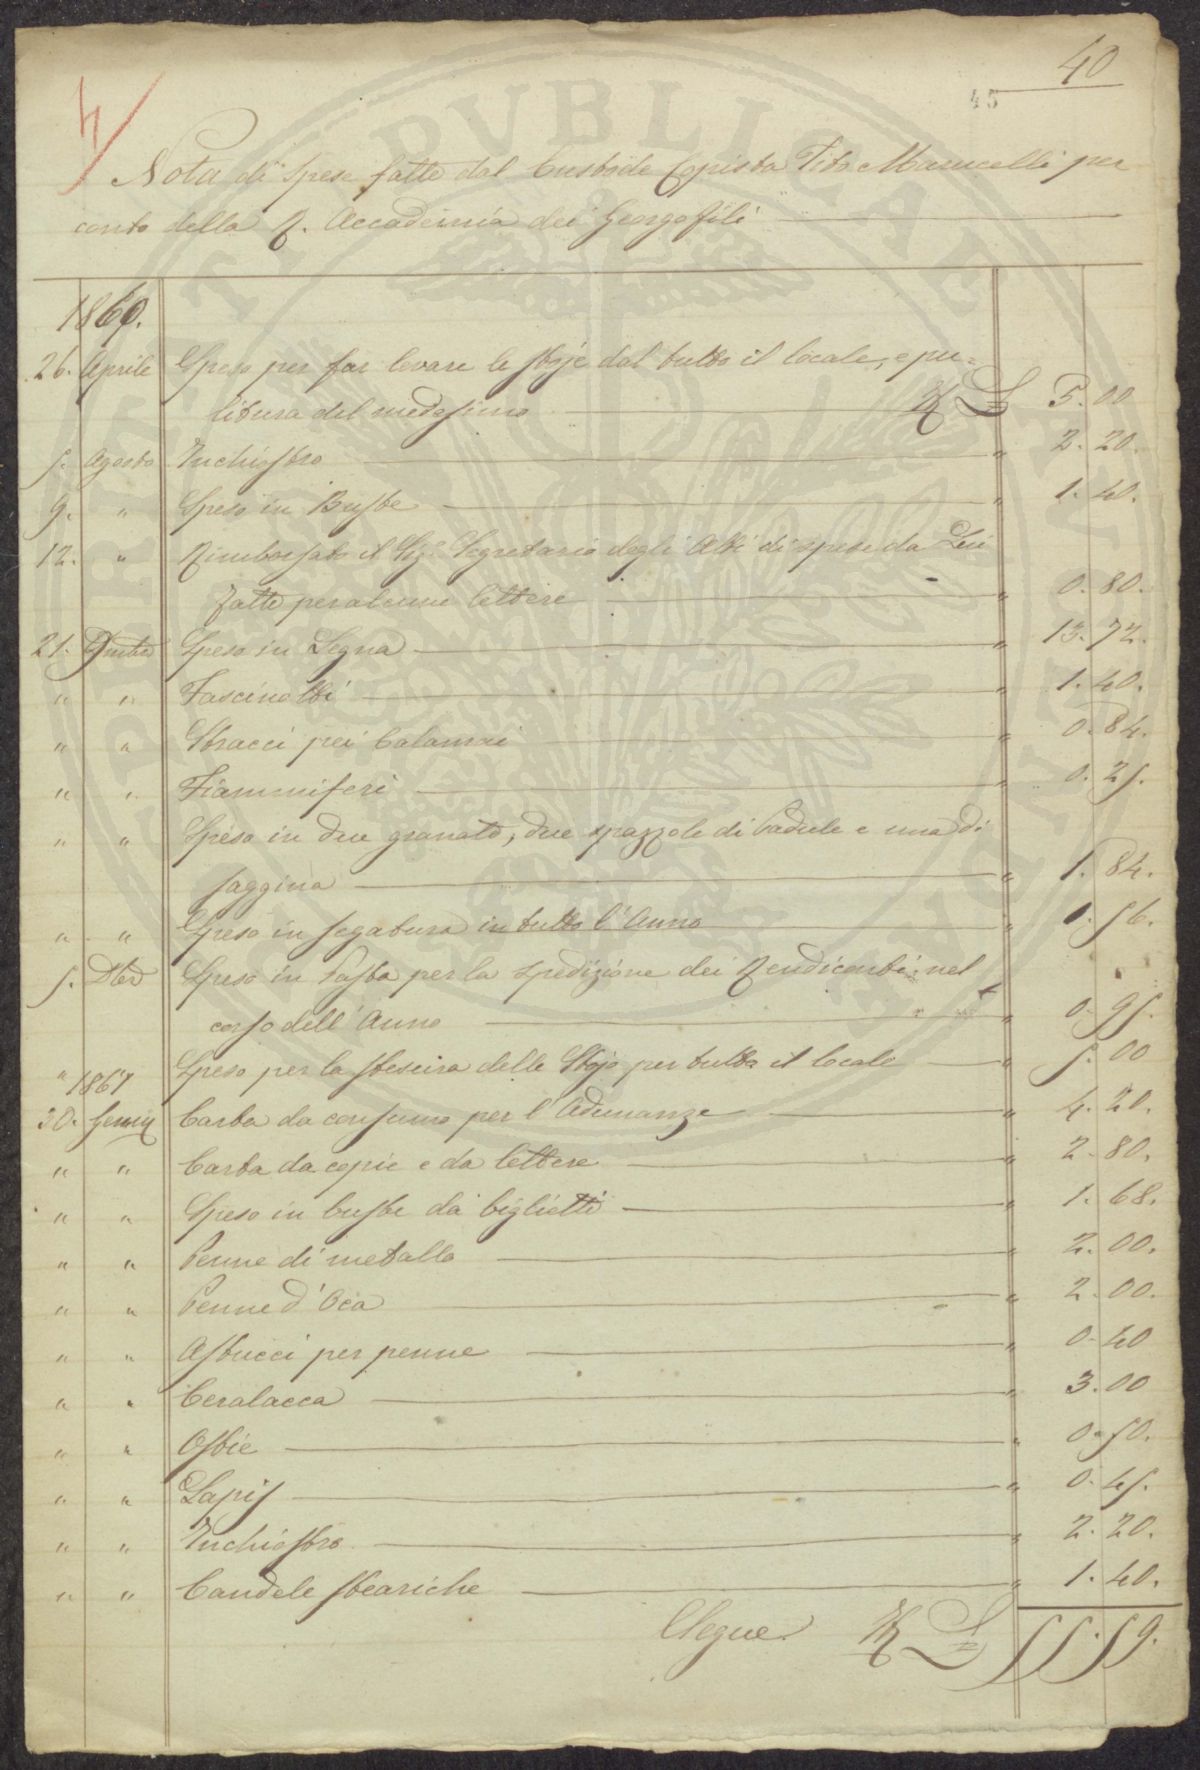 40
45
4
Nota di Spese fatte dal Custode Copista Tito Marucelli per
conto della R. Accademia dei Georgofili
1860.
26. Aprile Speso per far levare le stoje dal tutto il locale, e pu=
litura del medesimo L 5.00
5. Agosto Inchiostro " 2.20.
9. " Speso in Buste " 1.40.
12. " Rimborsato il Sigr. Segretario degli Atti di spese da Lui
fatte per alcune lettere " 0.80.
21. 9mbre Speso in Legna " 13.72.
" " Fascinotti " 1.40.
" " Stracci pei Calamai " 0.84.
" " Fiammiferi " 0.25.
" " Speso in due granate, due spazzole di Padule e una di
saggina " 1.84.
" " Speso in segatura in tutto l'Anno " 1.56.
5. Dbre Speso in Pasta per la spedizione dei Rendiconti nel
corso dell'Anno " 0.95.
" Speso per la stesura delle Stoje per tutto il locale " 5.00
1861
30. Genn Carta da consumo per l'Adunanze " 4.20.
" " Carta da copie e da lettere " 2.80.
" " Speso in buste da biglietti " 1.68.
" " Penne di metallo " 2.00.
" " Penne d'Oca " 2.00.
" " Astucci per penne " 0.40
" " Ceralacca " 3.00
" " Ostie " 0.50.
" " Lapis " 0.45.
" " Inchiostro " 2.20.
" " Candele steariche " 1.40.
Segue L 55.59.